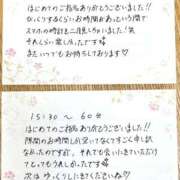 はじめてのご指名ありがとうございました!!
びっくりするくらいお時間があっという間で
スマホの時計を二度しちゃいました!笑
それくらい楽しかったです
またいつでもお待ちしております♡
15:30〜60分
はじめてのご指名ありがとうございました!!
隙間のお時間しか空いてなくてすごく申し訳
なかったのですが、それでも会いたきていただけ
てとってもうれしかったです
次はゆっくりしてきたいなです♡